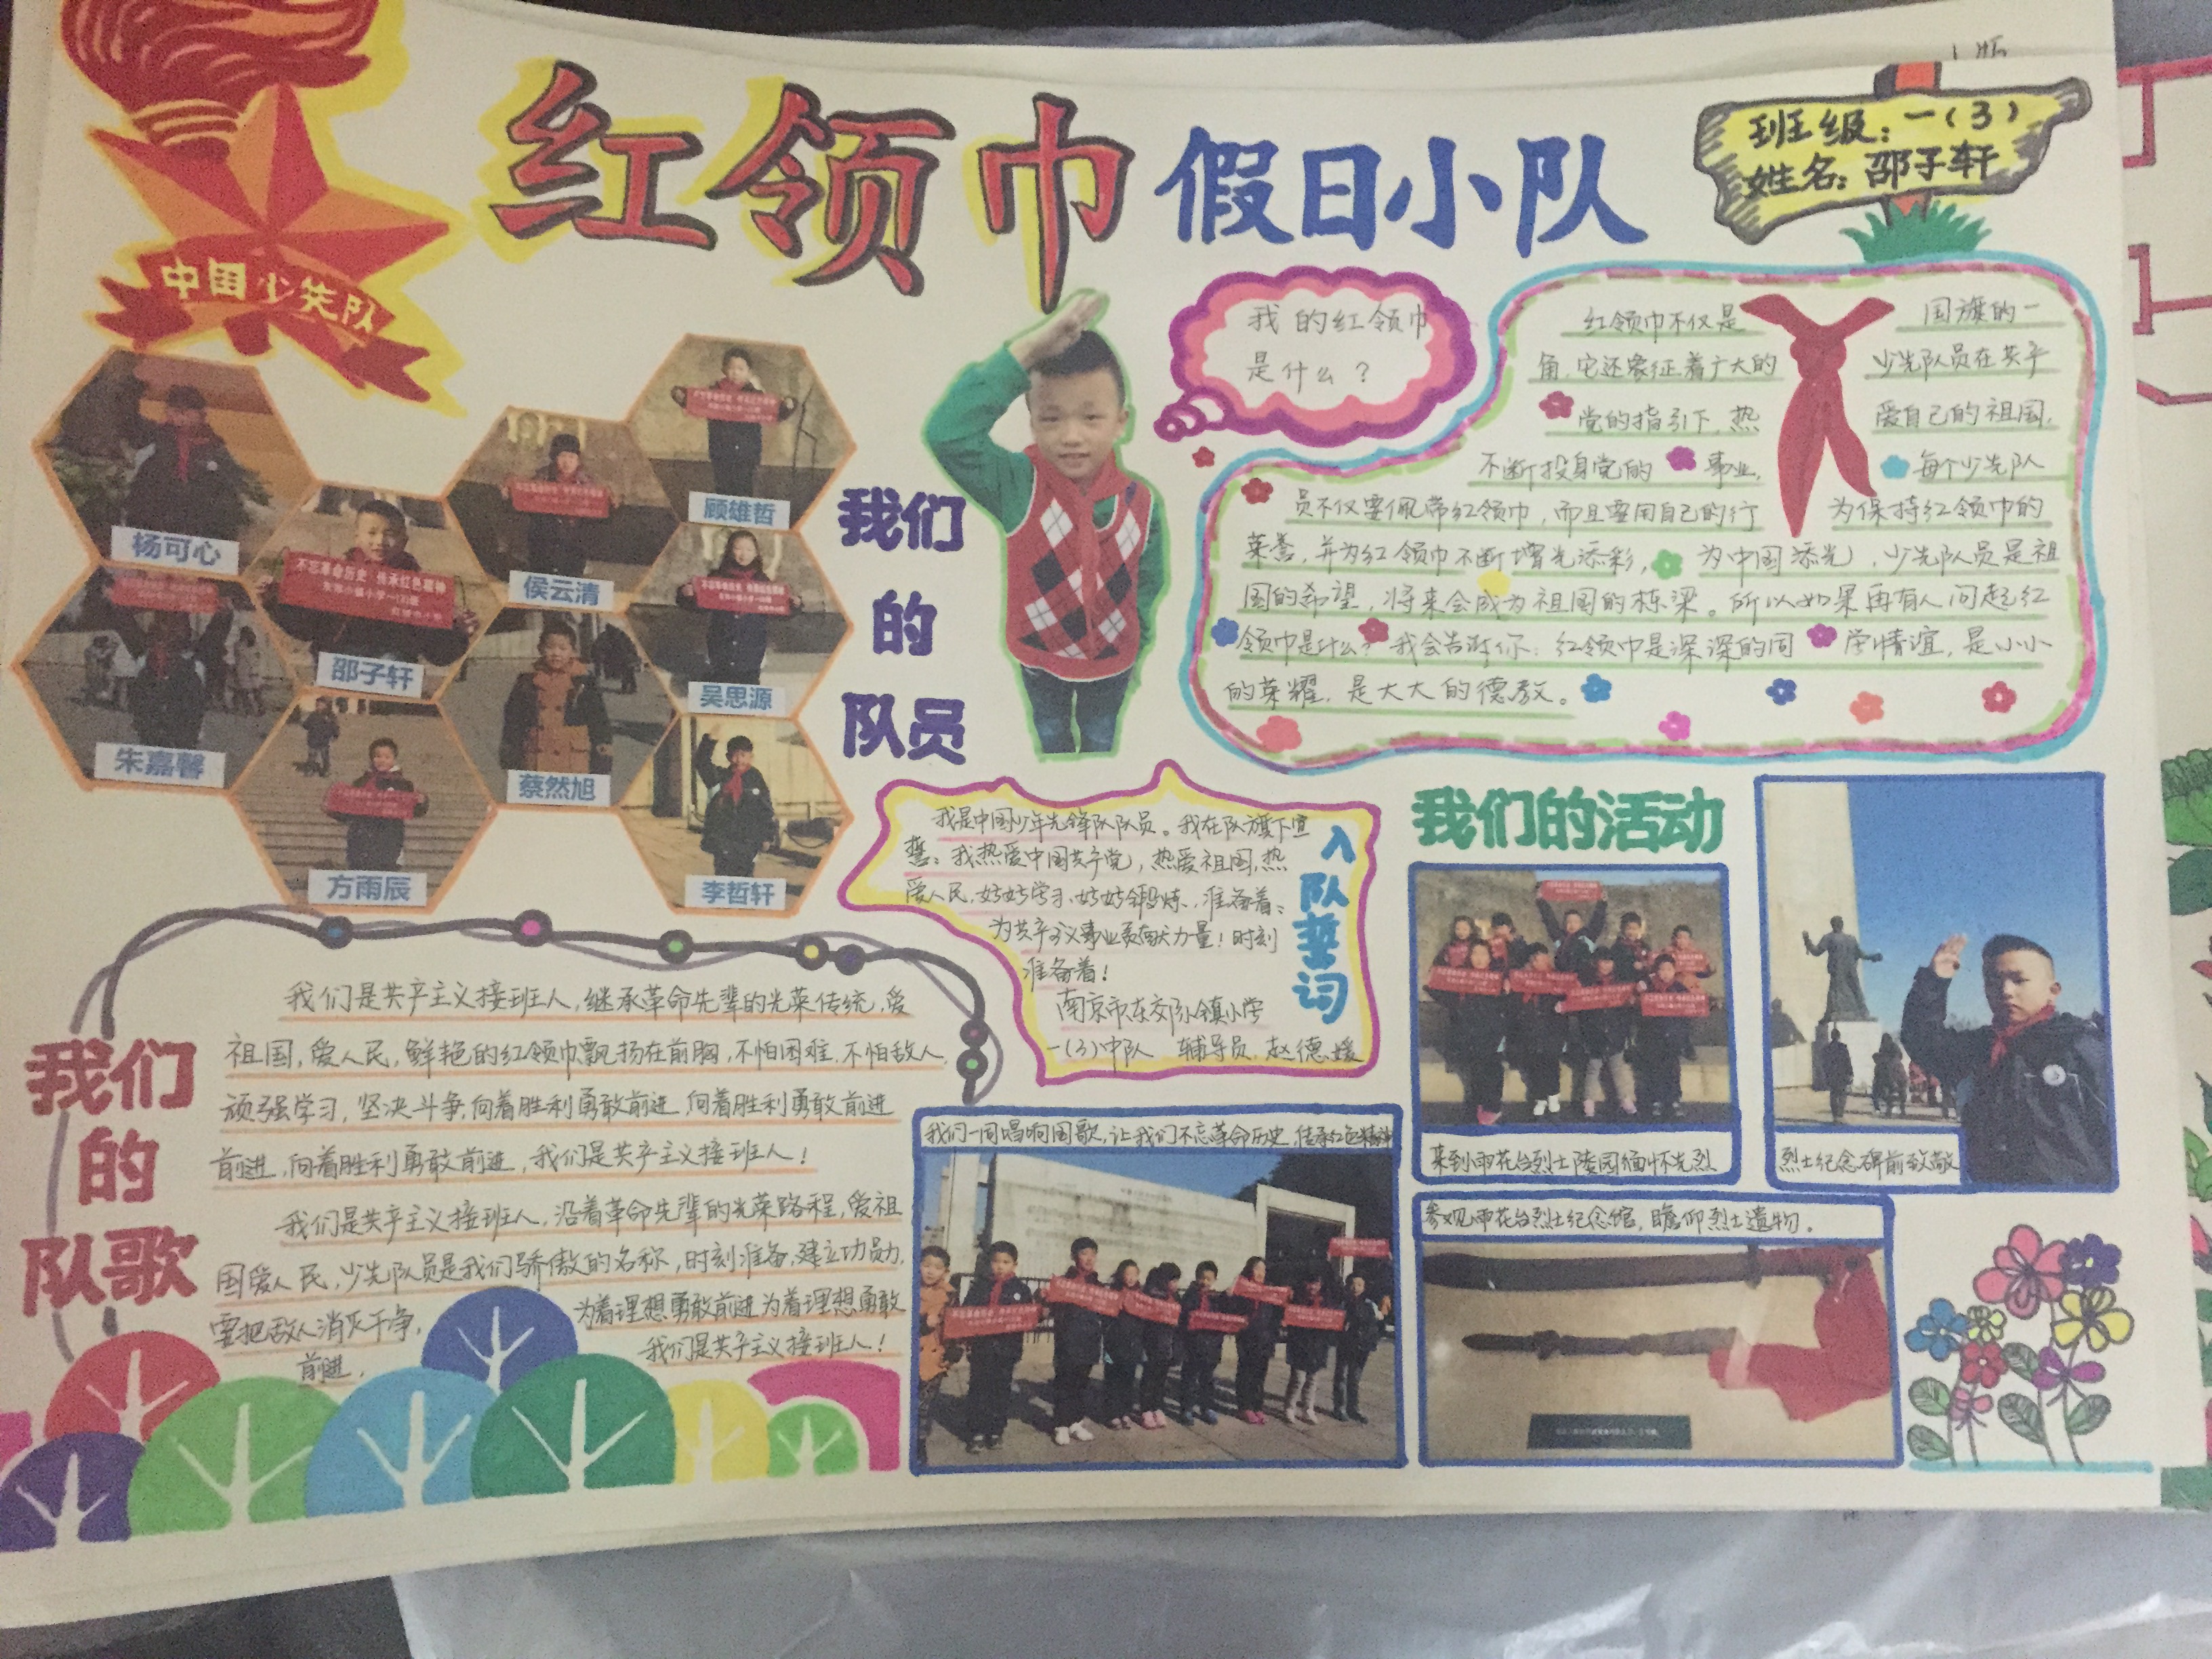 红领巾假日小队
班级：一(3)
姓名：邵子轩
中国少先队
我的红领巾
是什么？
红领巾不仅是国旗的一
角，它还象征着广大的少先队员在共产
党的指引下，热爱自己的祖国，
不断投身党的事业，每个少先队
员不仅要佩带红领巾，而且要用自己的行为保持红领巾的
荣誉，并为红领巾不断增光添彩，为中国添光，少先队员是祖
国的希望，将来会成为祖国的栋梁。所以如果再有人问起红
领巾是什么？我会告诉你：红领巾是深深的同学情谊，是小小
的荣耀，是大大的德教。
我们
的
队员
杨可心
顾雄哲
侯云清
邵子轩
吴思源
朱嘉馨
蔡然旭
方雨辰
李哲轩
不忘革命历史 传承红色精神
入队誓词
我是中国少年先锋队队员。我在队旗下宣
誓：我热爱中国共产党，热爱祖国，热
爱人民，好好学习，好好锻炼，准备着：
为共产主义事业贡献力量！时刻
准备着！
南京市
小镇小学
一(3)中队 辅导员：赵德媛
我们的活动
来到雨花台烈士陵园缅怀先烈
烈士纪念碑前致敬
我们一同唱响国歌，让我们不忘革命历史，传承红色精神
参观雨花台烈士纪念馆，瞻仰烈士遗物。
我们
的
队歌
我们是共产主义接班人，继承革命先辈的光荣传统，爱
祖国，爱人民，鲜艳的红领巾飘扬在前胸，不怕困难，不怕敌人，
顽强学习，坚决斗争，向着胜利勇敢前进，向着胜利勇敢前进
前进，向着胜利勇敢前进，我们是共产主义接班人！
我们是共产主义接班人，沿着革命先辈的光荣路程，爱祖
国爱人民，少先队员是我们骄傲的名称，时刻准备，建立功勋，
要把敌人消灭干净，为着理想勇敢前进为着理想勇敢
前进，我们是共产主义接班人！